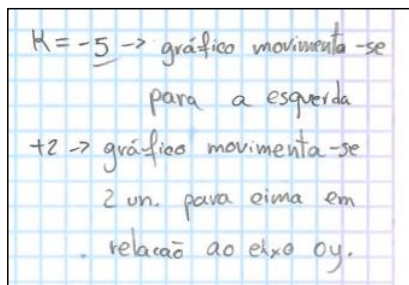 K = -5 → gráfico movimenta-se
para a esquerda
+2 → gráfico movimenta-se
2 un. para cima em
relação ao eixo oy.